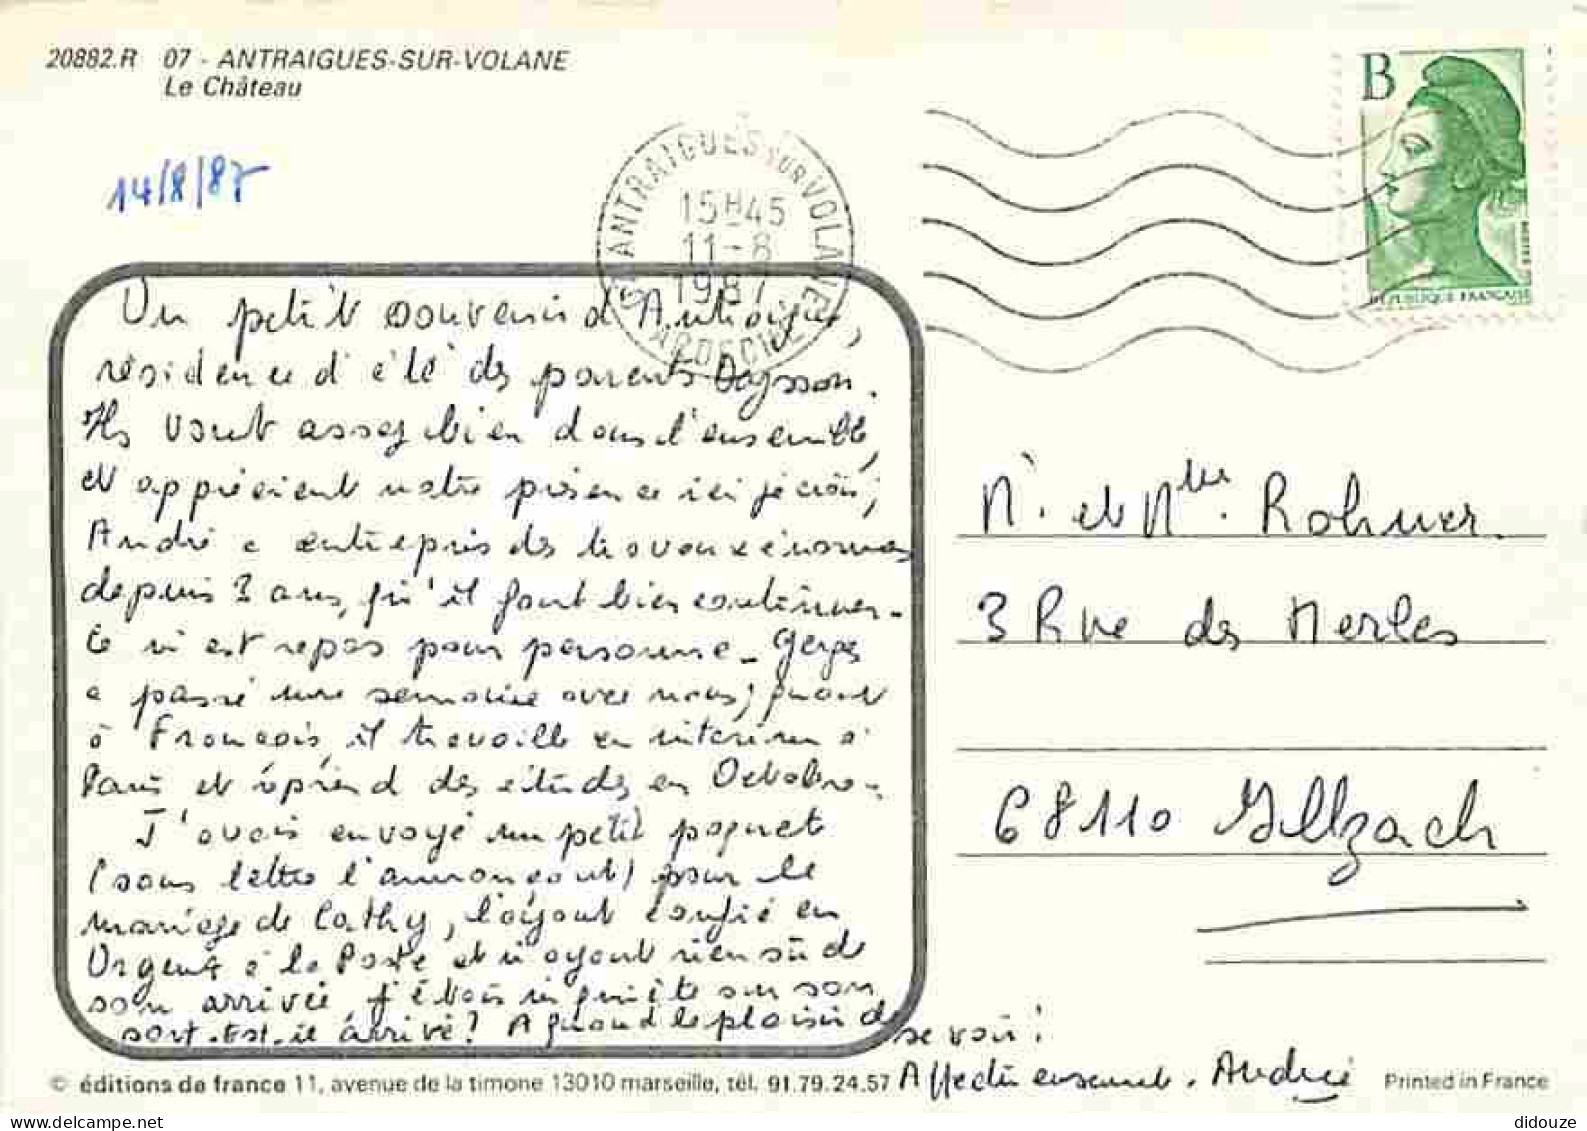 20882.R 07 - ANTRAIGUES-SUR-VOLANE
Le Château
14/8/87
ANTRAIGUES SUR VOLANE
15H45
11-8
1987
ARDECHE
B
REPUBLIQUE FRANÇAISE
Un petit souvenir d'Antraigues,
résidence d'été des parents
Ils vont assez bien dans l'ensemble,
et apprécient notre présence ici je crois;
André a entrepris des travaux énormes
depuis 3 ans, qu'il faut bien continuer -
Ce n'est repos pour personne -
a passé une semaine avec nous; quant
à François, il travaille en intérim à
Paris et reprend des études en Octobre -
J'avais envoyé un petit paquet
(sans lettre l'annonçant) pour le
mariage de Cathy, l'ayant confié en
Urgence à la Poste et n'ayant rien sû de
son arrivée, j'étais inquiète sur son
sort. Est-il arrivé? A quand le plaisir de
se voir!
Affectueusement. Andrée
M. et Mlle. Rohmer.
3 Rue des Merles
68110 Illzach
© éditions de france 11, avenue de la timone 13010 marseille, tél. 91.79.24.57
Printed in France
didouze